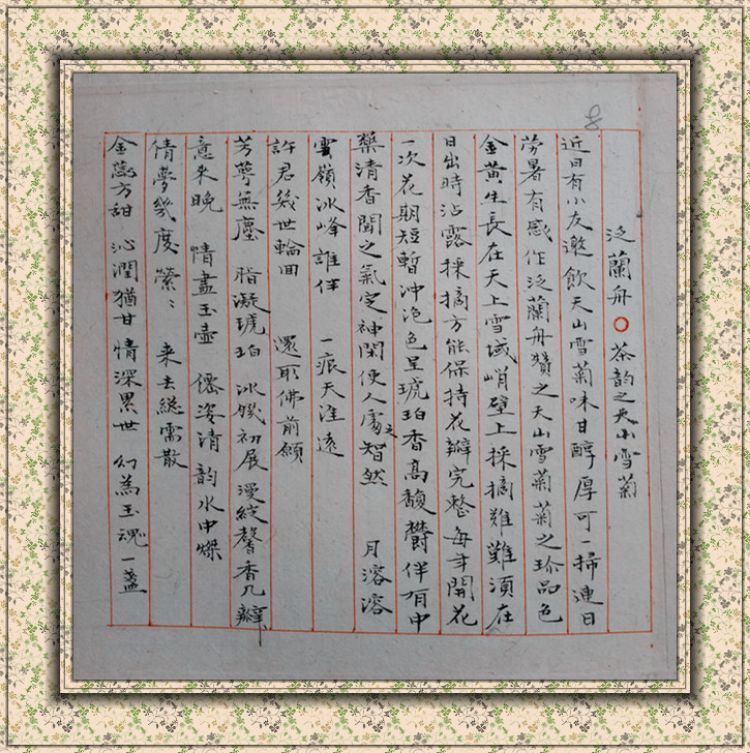 泛蘭舟○茶韵之天山雪菊
近日有小友邀飲天山雪菊味甘醇厚可一掃連日
勞暑有感作泛蘭舟贊之天山雪菊菊之珍品色
金黄生長在天上雪域峭壁上採摘難難須在
日出時沾露採摘方能保持花瓣完整每年開花
一次花期短暫沖泡色呈琥珀香高馥欝伴有中
藥清香聞之氣定神閑使人處之智然 月溶溶
雲嶺冰峰誰伴 一痕天涯遠
許君幾世輪回 還取佛前願
芳萼無塵 脂凝琥珀 冰㜑初展 漫綻馨香几瓣
意来晚 情盡玉壺 僊姿清韵水中燦
倩夢幾度縈〻 来去総需散
金蕊方甜 沁潤猶甘 情深累世 幻為玉魂一盞